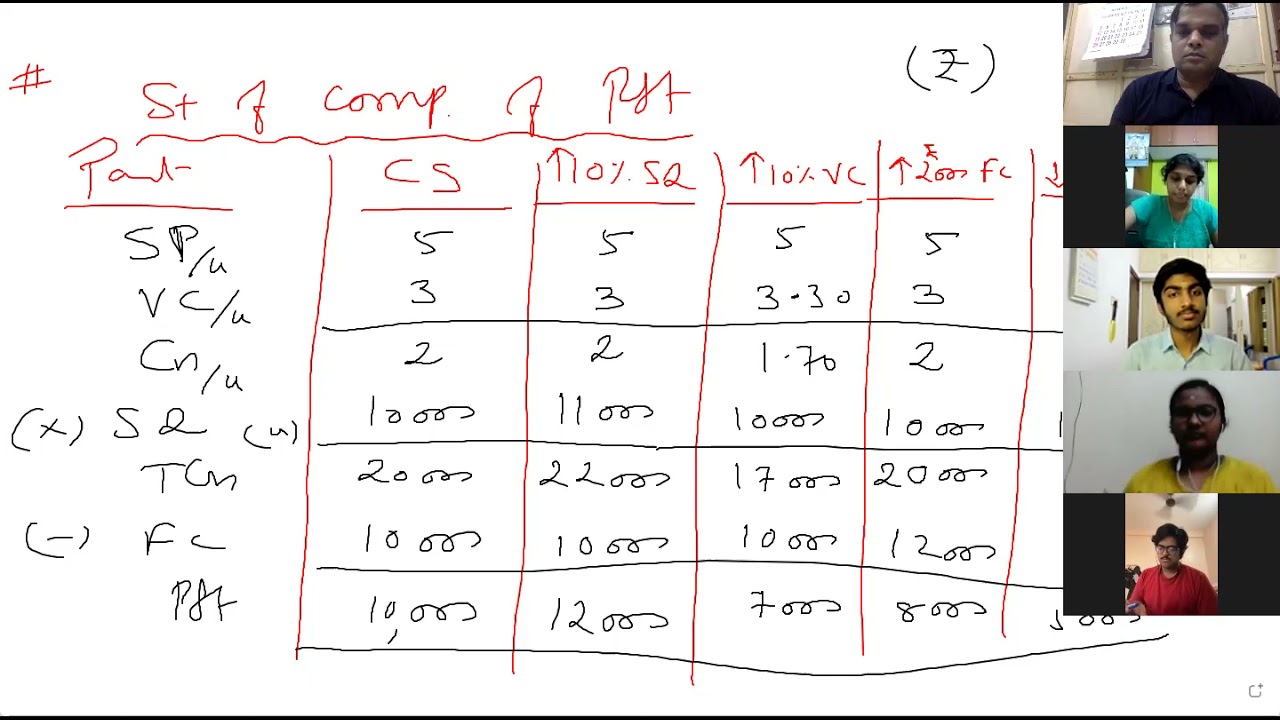 (₹)
# St of comp. of Pft
Part CS ↑10% SQ ↑10% VC ↑₹2000 FC ↓
SP/u 5 5 5 5
VC/u 3 3 3.30 3
Cn/u 2 2 1.70 2
(x) SQ (u) 10000 11000 10000 10000 1
TCn 20000 22000 17000 20000
(-) FC 10000 10000 10000 12000
Pft 10,000 12000 7000 8000 5000